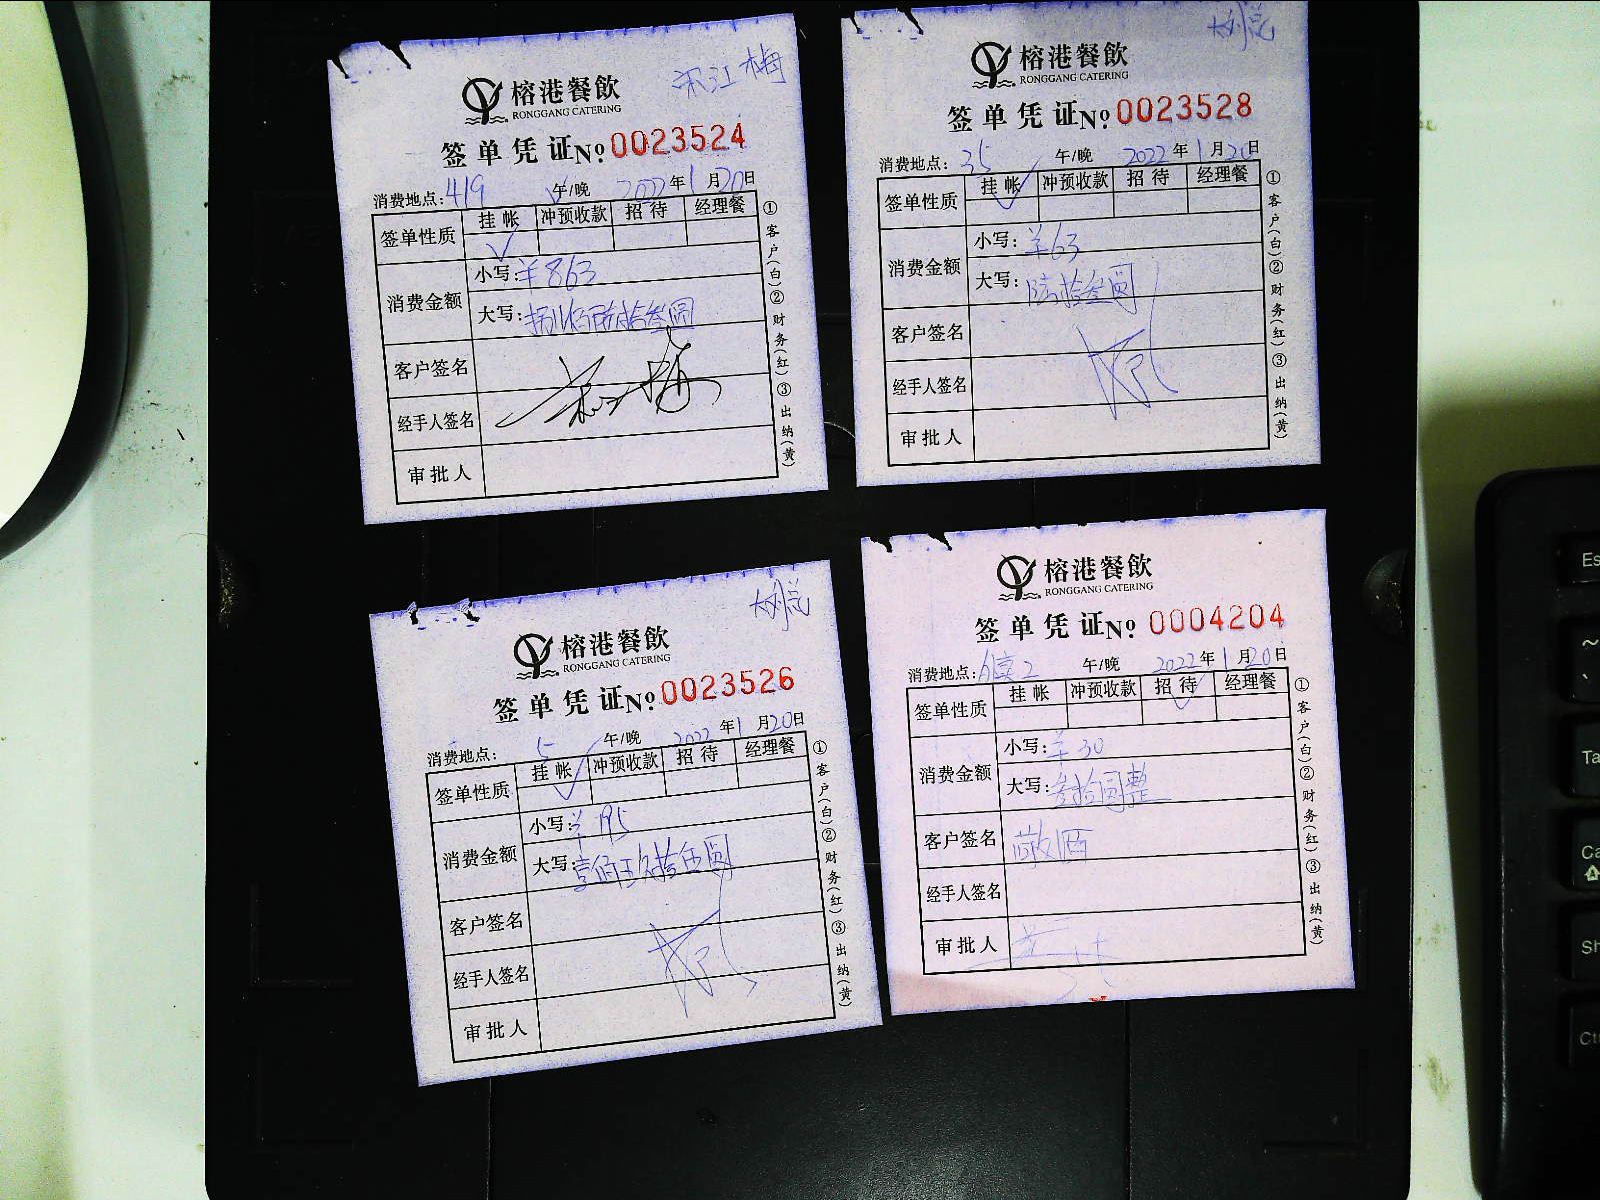 宋江梅
榕港餐飲
RONGGANG CATERING
签单凭证№ 0023524
消费地点:419 午/晚 2022年1月20日
签单性质 挂帐 冲预收款 招待 经理餐
✓
消费金额 小写:¥863
大写:捌佰陆拾叁圆
客户签名
经手人签名
审批人
①客户(白)②财务(红)③出纳(黄)
榕港餐飲
RONGGANG CATERING
签单凭证№ 0023528
消费地点:35 午/晚 2022年1月20日
签单性质 挂帐 冲预收款 招待 经理餐
✓
消费金额 小写:¥63
大写:陆拾叁圆
客户签名
经手人签名
审批人
①客户(白)②财务(红)③出纳(黄)
榕港餐飲
RONGGANG CATERING
签单凭证№ 0023526
消费地点:5 午/晚 2022年1月20日
签单性质 挂帐 冲预收款 招待 经理餐
✓
消费金额 小写:¥195
大写:壹佰玖拾伍圆
客户签名
经手人签名
审批人
①客户(白)②财务(红)③出纳(黄)
榕港餐飲
RONGGANG CATERING
签单凭证№ 0004204
消费地点: 2 午/晚 2022年1月20日
签单性质 挂帐 冲预收款 招待 经理餐
✓
消费金额 小写:¥30
大写:叁拾圆整
客户签名 敬酒
经手人签名
审批人
①客户(白)②财务(红)③出纳(黄)
Es
~
Ta
Ca
Sh
Ct